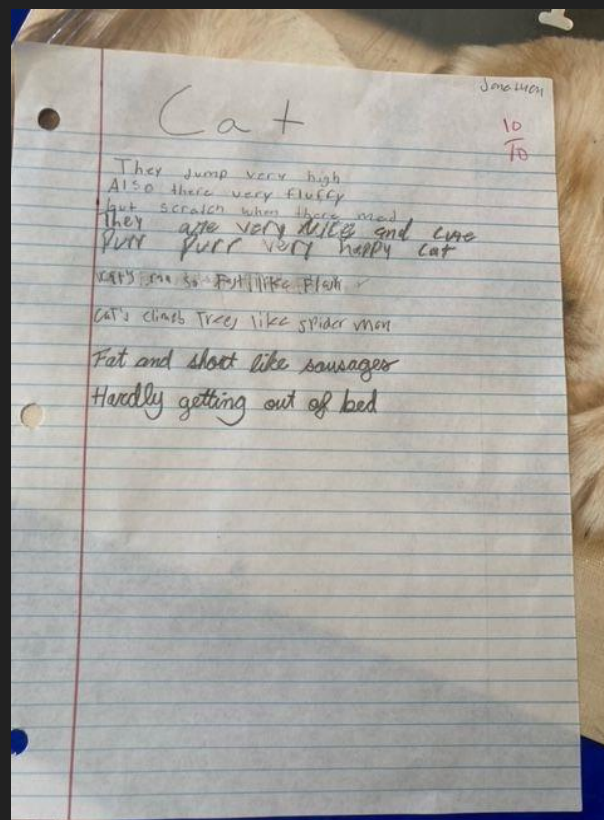 Jonathon
Cat
10
10
They Jump very high
Also there very fluffy
but scratch when there mad
They are very Nice and cute
Purr Purr very happy cat
so Fast like Flash
Cat's climb Trees like spider man
Fat and short like sausages
Hardly getting out of bed